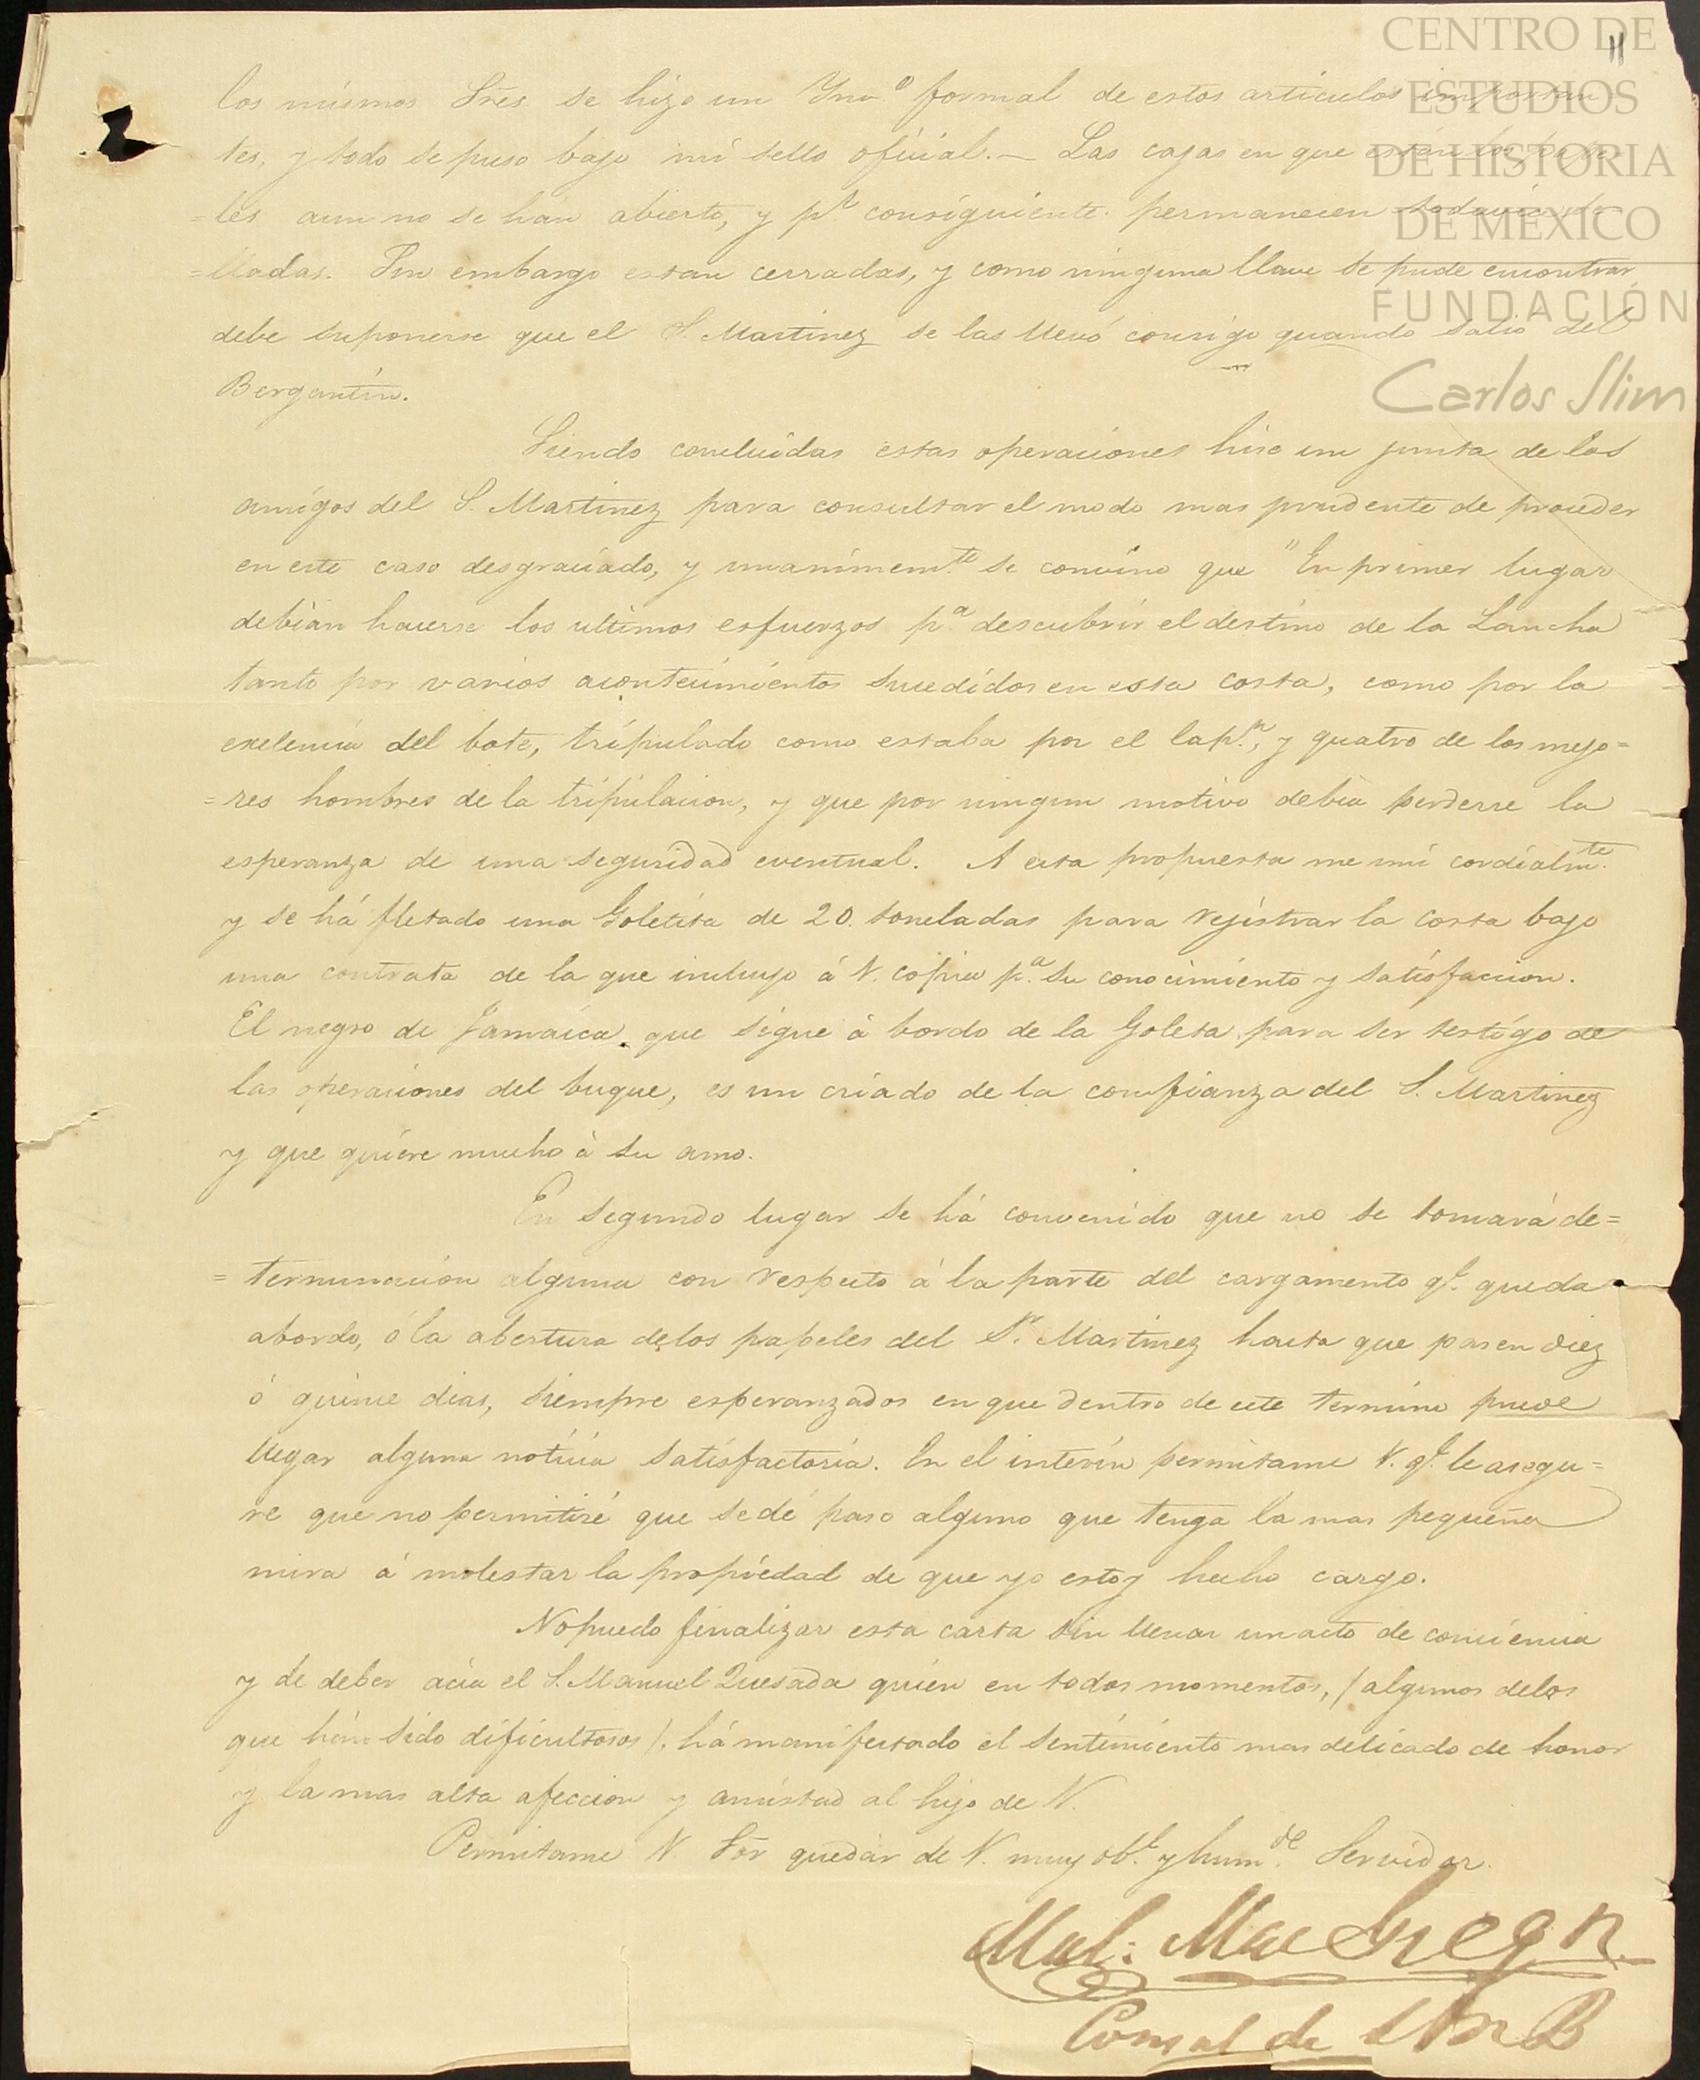 CENTRO DE
ESTUDIOS
DE HISTORIA
DE MÉXICO
FUNDACIÓN
Carlos Slim
11
los mismos Sres se hizo un Ynvo formal de estos articulos importan=
tes, y todo se puso bajo mi sello oficial. — Las cajas en que están los pape
=les aun no se han abierto, y pr consiguiente permanecen todavia se
=lladas. Sin embargo estan cerradas, y como ninguna llave se pude encontrar
debe suponerse que el S. Martinez se las llevó consigo quando salió del
Bergantin.
Siendo concluidas estas operaciones hise un junta de los
amigos del S. Martinez para consultar el modo mas prudente de proceder
en este caso desgraciado, y unanimemte se convino que "En primer lugar
debian hacerse los ultimos esfuerzos pa descubrir el destino de la Lancha
tanto por varios acontecimientos sucedidos en esta costa, como por la
exelencia del bote, tripulado como estaba por el Capn, y quatro de los mejo=
=res hombres de la tripulacion, y que por ningun motivo debia perderse la
esperanza de una seguridad eventual. A esta propuesta me uni cordialmte
y se há fletado una Goletita de 20. toneladas para rejistrar la costa bajo
una contrata de la que incluyo á V. copia pa su conocimiento y satisfaccion.
El negro de Jamaica que sigue à bordo de la Goleta para ser testigo de
las operaciones del buque, es un criado de la confianza del S. Martinez
y que quiere mucho à su amo.
En segundo lugar se há convenido que no se tomará de=
=terminacion alguna con respecto á la parte del cargamento qe queda
abordo, ó la abertura delos papeles del Sr Martinez hasta que pasen diez
ó quince dias, siempre esperanzados en que dentro de este termino puede
llegar alguna noticia satisfactoria. En el interin permitame V. qe le asegu=
re que no permitiré que se dé paso alguno que tenga la mas pequeña
mira á molestar la propiedad de que yo estoy hecho cargo.
No puedo finalizar esta carta sin llenar un acto de conciencia
y de deber acia el S. Manuel Quesada quien en todos momentos, / algunos delos
que hán sido dificultosos /. há manifestado el sentimiento mas delicado de honor
y la mas alta afeccion y amistad al hijo de V.
Permitame V. Sor quedar de V. muy obte y humde Servidor.
Mal: MacGregor
Consul de S M B